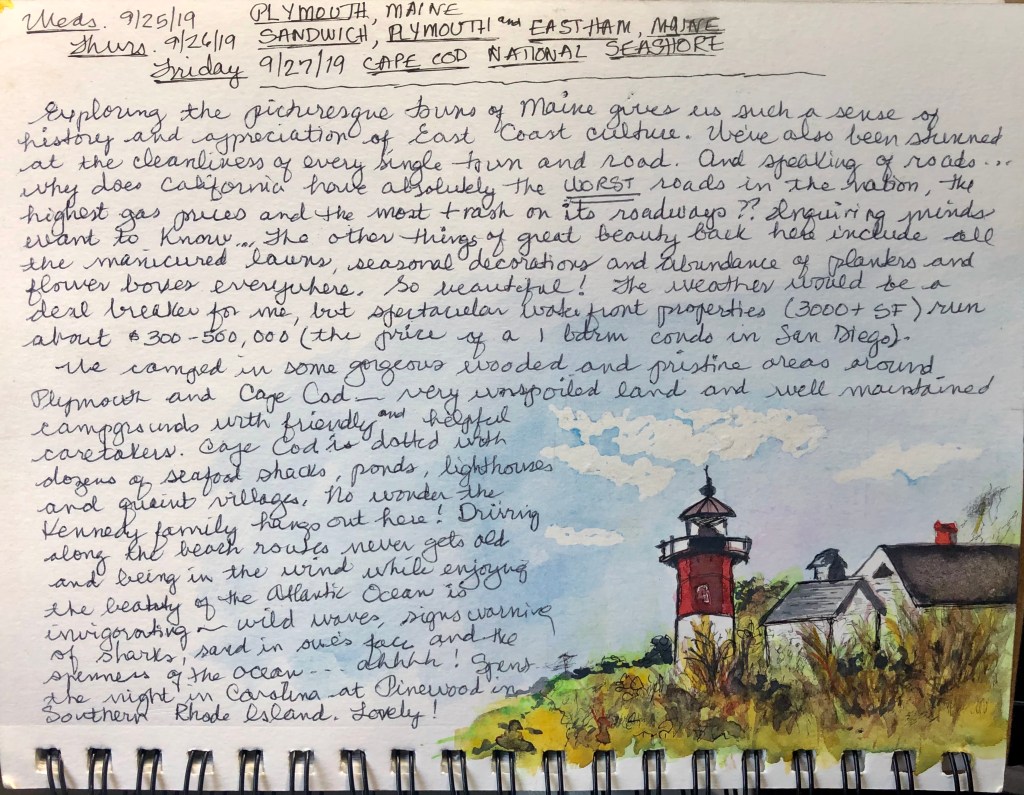 Weds. 9/25/19 PLYMOUTH, MAINE
Thurs. 9/26/19 SANDWICH, PLYMOUTH and EASTHAM, MAINE
Friday 9/27/19 CAPE COD NATIONAL SEASHORE
Exploring the picturesque towns of Maine gives us such a sense of
history and appreciation of East Coast culture. We've also been stunned
at the cleanliness of every single town and road. And speaking of roads...
why does California have absolutely the WORST roads in the nation, the
highest gas prices and the most trash on its roadways?? Inquiring minds
want to know... The other things of great beauty back here include all
the manicured lawns, seasonal decorations and abundance of planters and
flower boxes everywhere. So beautiful! The weather would be a
deal breaker for me, but spectacular waterfront properties (3000+ SF) run
about $300-500,000 (the price of a 1 bdrm condo in San Diego).
We camped in some gorgeous wooded and pristine areas around
Plymouth and Cape Cod — very unspoiled land and well maintained
campgrounds with friendly and helpful
caretakers. Cape Cod is dotted with
dozens of seafood shacks, ponds, lighthouses
and quaint villages. No wonder the
Kennedy family hangs out here! Driving
along the beach routes never gets old
and being in the wind while enjoying
the beauty of the Atlantic Ocean is
invigorating ~ wild waves, signs warning
of sharks, sand in one's face and the
openness of the ocean... ahhhh! Spent
the night in Carolina at Pinewood in
Southern Rhode Island. Lovely!